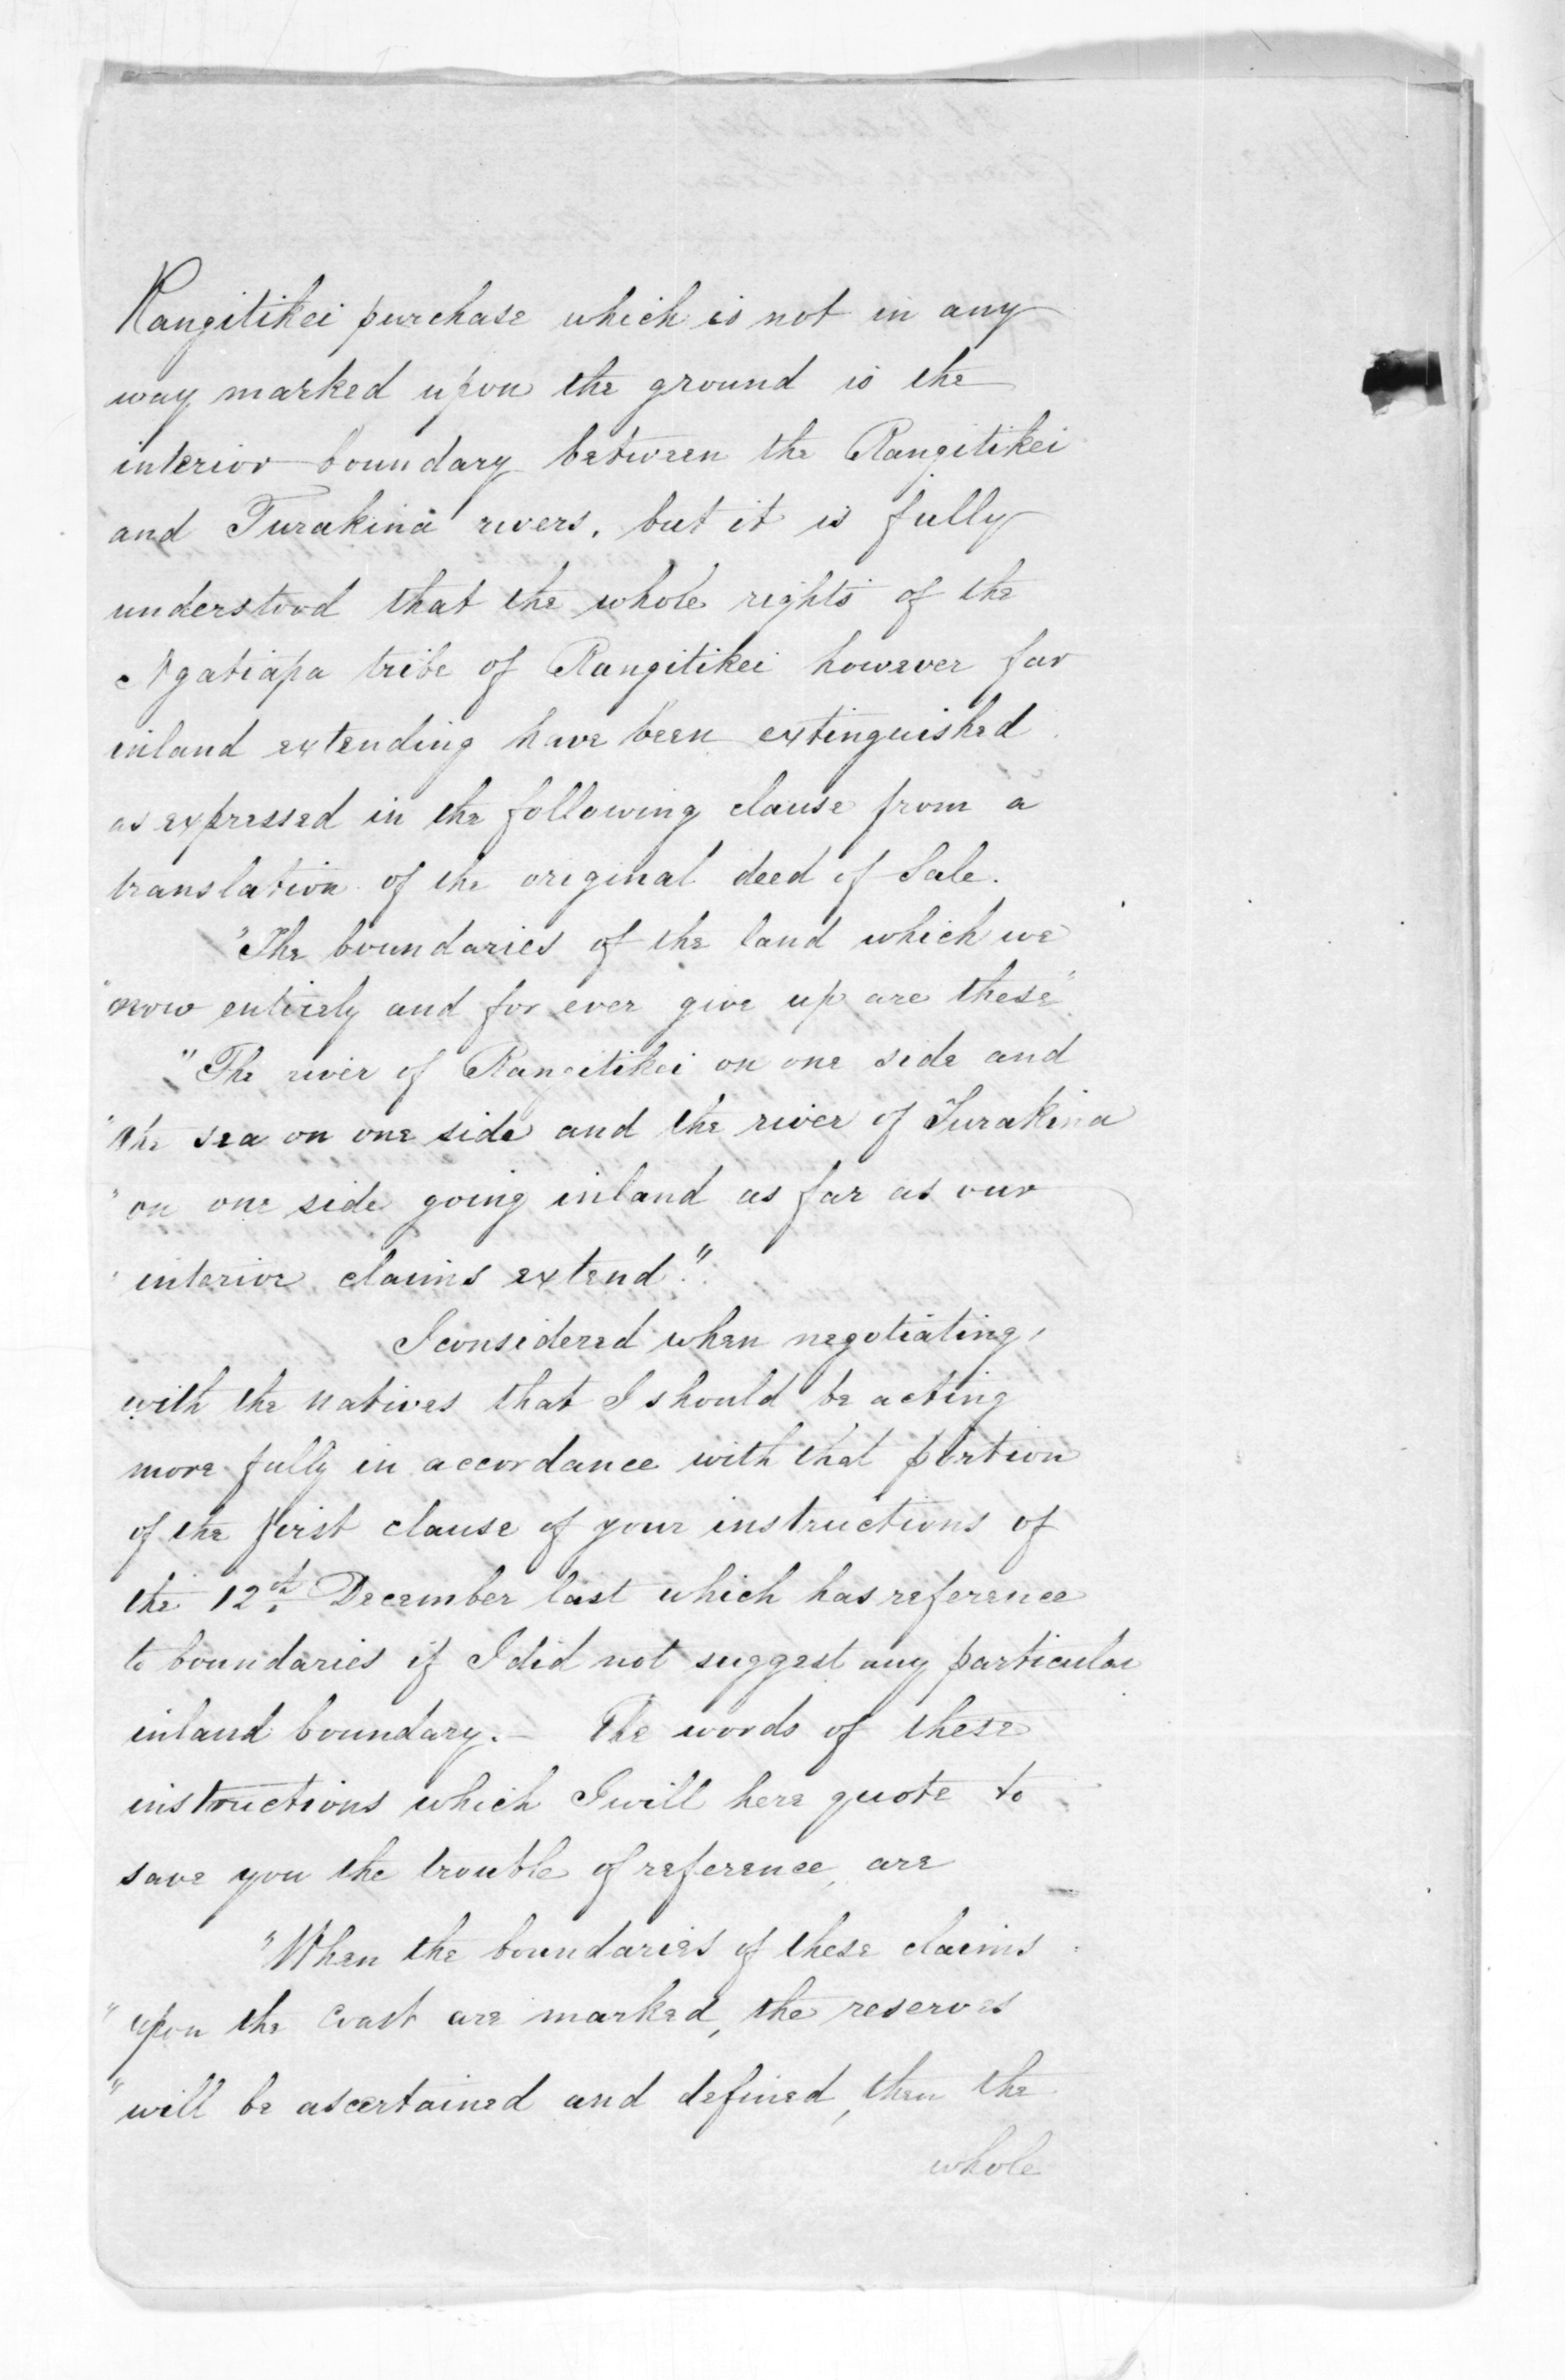 Rangitikei purchase which is not in any
way marked upon the ground is the
interior boundary between the Rangitikei
and Turakina rivers, but it is fully
understood that the whole rights of the
Ngatiapa tribe of Rangitikei however far
inland extending have been extinguished
as expressed in the following clause from a
translation of the original deed of Sale.
"The boundaries of the land which we
"now entirely and for ever give up are these"
"The river of Rangitikei on one side and
"the sea on one side and the river of Turakina
"on one side going inland as far as our
"interior claims extend."
I considered when negotiating,
with the natives that I should be acting
more fully in accordance with that portion
of the first clause of your instructions of
the 12th December last which has reference
to boundaries if I did not suggest any particular
inland boundary. — The words of these
instructions which I will here quote to
save you the trouble of reference, are
"When the boundaries of these claims
"upon the Coast are marked, the reserves
"will be ascertained and defined, then the
whole